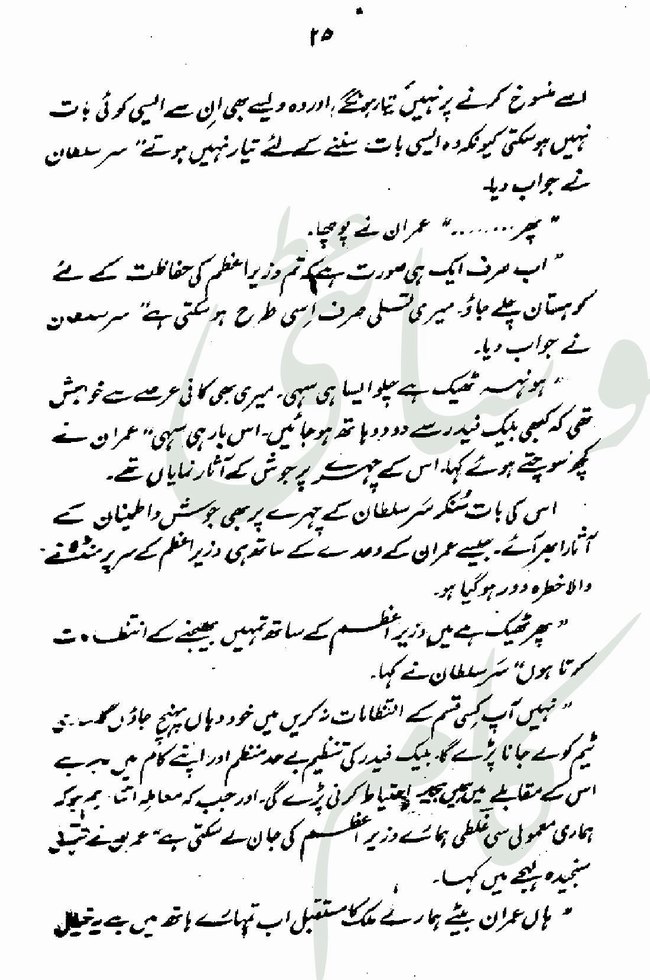 ۲۵
اسے منسوخ کرنے پر نہیں تیار ہونگے، اور وہ ویسے بھی ان سے ایسی کوئی بات
نہیں ہو سکتی کیونکہ وہ ایسی بات سننے کے لئے تیار نہیں ہوتے" سر سلطان
نے جواب دیا۔
"پھر........" عمران نے پوچھا۔
"اب صرف ایک ہی صورت ہے کہ تم وزیر اعظم کی حفاظت کے لئے
کوہستان چلے جاؤ۔ میری تسلی صرف اِسی طرح ہو سکتی ہے" سر سلطان
نے جواب دیا۔
"ہونہہ ٹھیک ہے چلو ایسا ہی سہی۔ میری بھی کافی عرصے سے خواہش
تھی کہ کبھی بلیک فیدر سے دو دو ہاتھ ہو جائیں۔ اس بار ہی سہی" عمران نے
کچھ سوچتے ہوئے کہا۔ اس کے چہرے پر جوش کے آثار نمایاں تھے۔
اس کی بات سُنکر سر سلطان کے چہرے پر بھی جوش و اطینان کے
آثار ابھر آئے۔ جیسے عمران کے وعدے کے ساتھ ہی وزیر اعظم کے سر پر منڈلانے
والا خطرہ دور ہو گیا ہو۔
"پھر ٹھیک ہے میں وزیر اعظم کے ساتھ تمہیں بھیجنے کے انتظامات
کرتا ہوں" سر سلطان نے کہا۔
"نہیں آپ کِسی قسم کے انتظامات نہ کریں میں خود وہاں پہنچ جاؤں گا
ٹیم کو لے جانا پڑے گا۔ بلیک فیدر کی تنظیم بے حد منظم اور اپنے کام میں ہے
اس کے مقابلے میں ہمیں بیحد احتیاط کرنی پڑے گی۔ اور جب کہ معاملہ اتنا اہم ہو کہ
ہماری معمولی سی غلطی ہمارے وزیر اعظم کی جان لے سکتی ہے" عمران نے
سنجیدہ لہجے میں کہا۔
"ہاں عمران بیٹے ہمارے ملک کا مستقبل اب تمہارے ہاتھ میں ہے یہ خیال